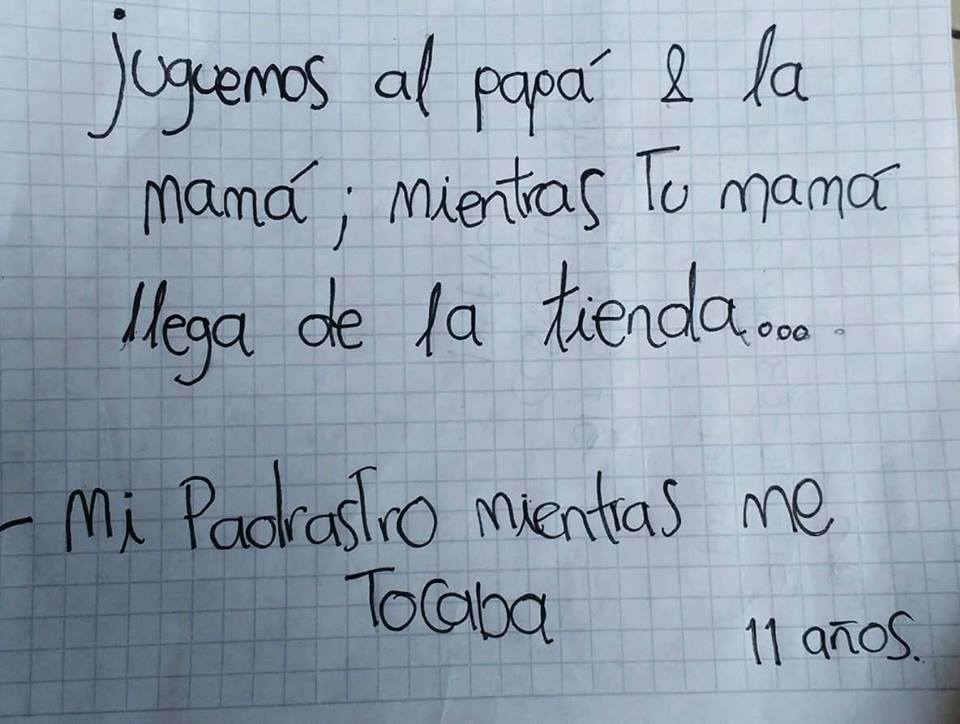 juguemos al papá & la
mamá; mientras Tu mamá
llega de la tienda....
- Mi Padrastro mientras me
Tocaba
11 años.